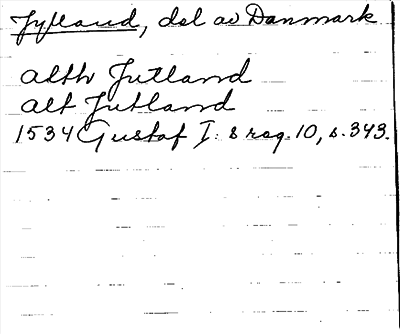 Jylland, del av Danmark
altH Jutland
alt Jutland
1534 Gustaf I: s reg. 10, s. 343.